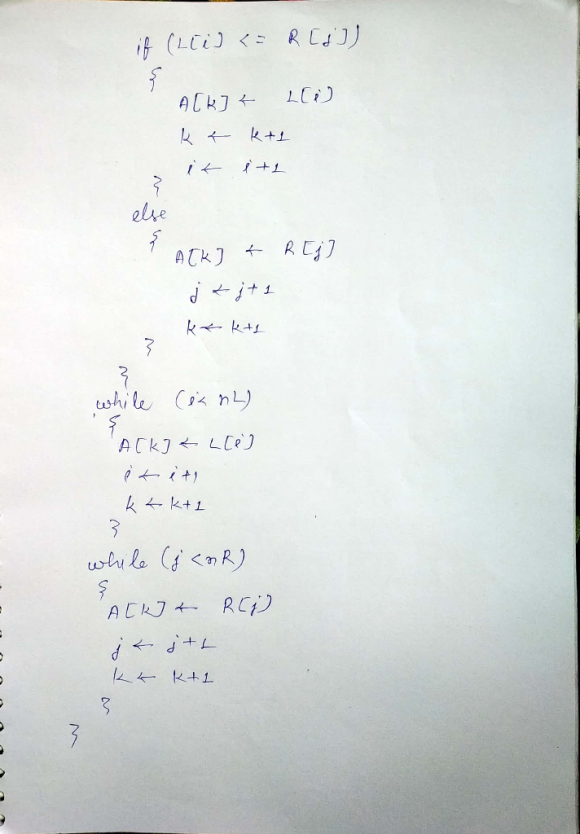 if (L[i] <= R[j])
{
A[k] ← L[i]
k ← k+1
i ← i+1
}
else
{
A[k] ← R[j]
j ← j+1
k ← k+1
}
}
while (i< nL)
{
A[k] ← L[i]
i ← i+1
k ← k+1
}
while (j < nR)
{
A[k] ← R[j]
j ← j+1
k ← k+1
}
}